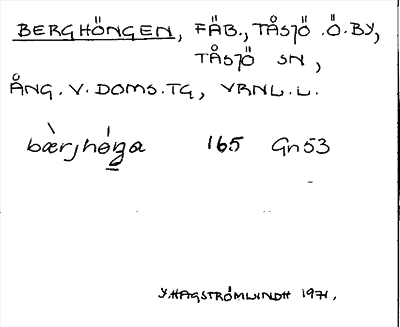 BERGHÖNGEN, FÄB., TÅSJÖ Ö.BY,
TÅSJÖ SN,
ÅNG. V. DOMS. TG, VRNL.L.
bæ̀rjhǿŋa 165 Gn53
Y. HAGSTRÖMLINDH 1971.